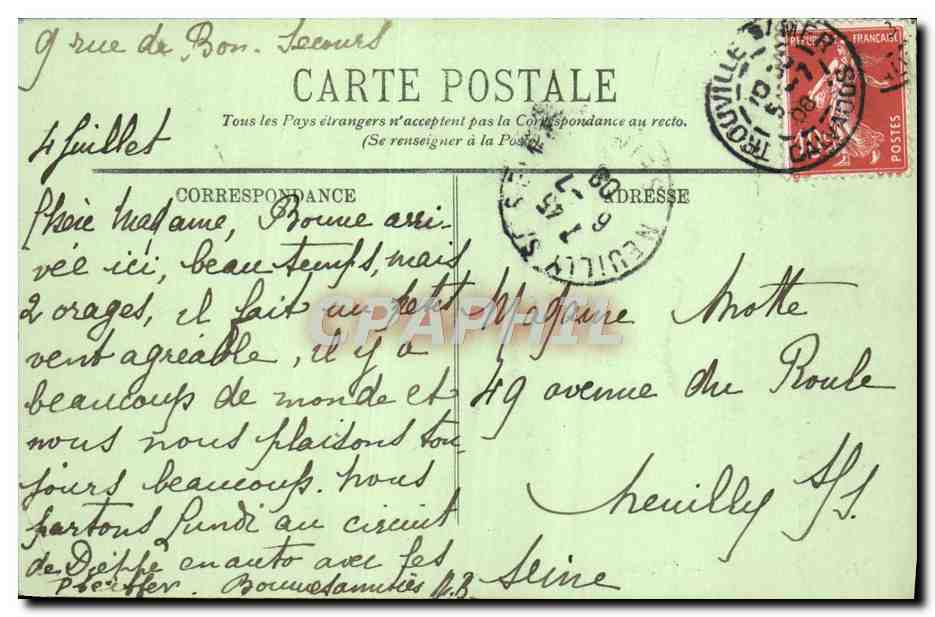 9 rue de Bon-Secours
CARTE POSTALE
Tous les Pays étrangers n'acceptent pas la Correspondance au recto.
(Se renseigner à la Poste)
4 Juillet
CORRESPONDANCE
Chère Madame, Bonne arri-
vée ici, beau temps, mais
2 orages, il fait un petit
vent agréable, il y a
beaucoup de monde et
nous nous plaisons tou-
jours beaucoup. Nous
partons Lundi au circuit
de Dieppe en auto avec les
Pfeiffer. Bonnes amitiés M.B.
ADRESSE
Madame Motte
49 avenue du Roule
Neuilly s/s.
Seine
TROUVILLE S/MER
CALVADOS
NEUILLY S/
REPUBLIQUE FRANÇAISE
POSTES
CPAPHIL